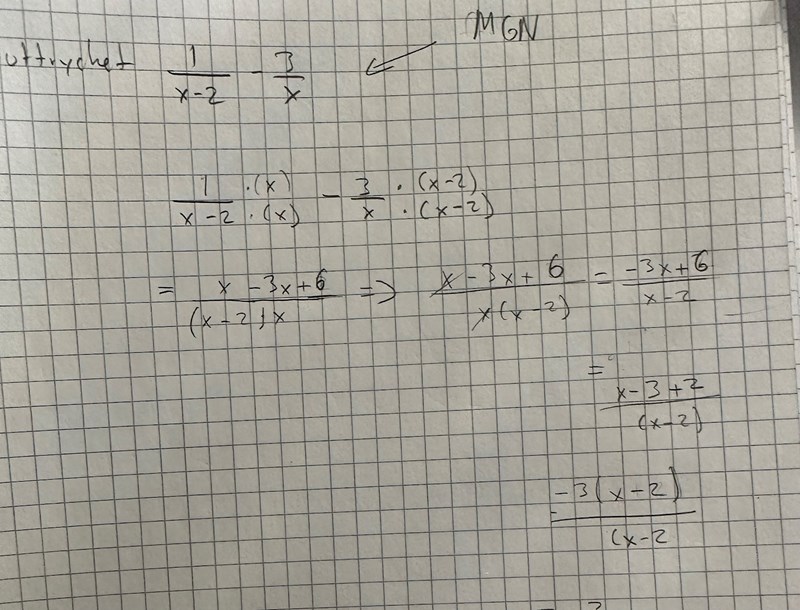 MGN
uttrychet 1/(x-2) - 3/x
1/(x-2) ·(x)/·(x) - 3/x ·(x-2)/·(x-2)
= (x -3x+6)/((x-2)x) => (x -3x+6)/(x(x-2)) = (-3x+6)/(x-2)
= (x-3+2)/((x-2))
(-3(x-2))/((x-2)